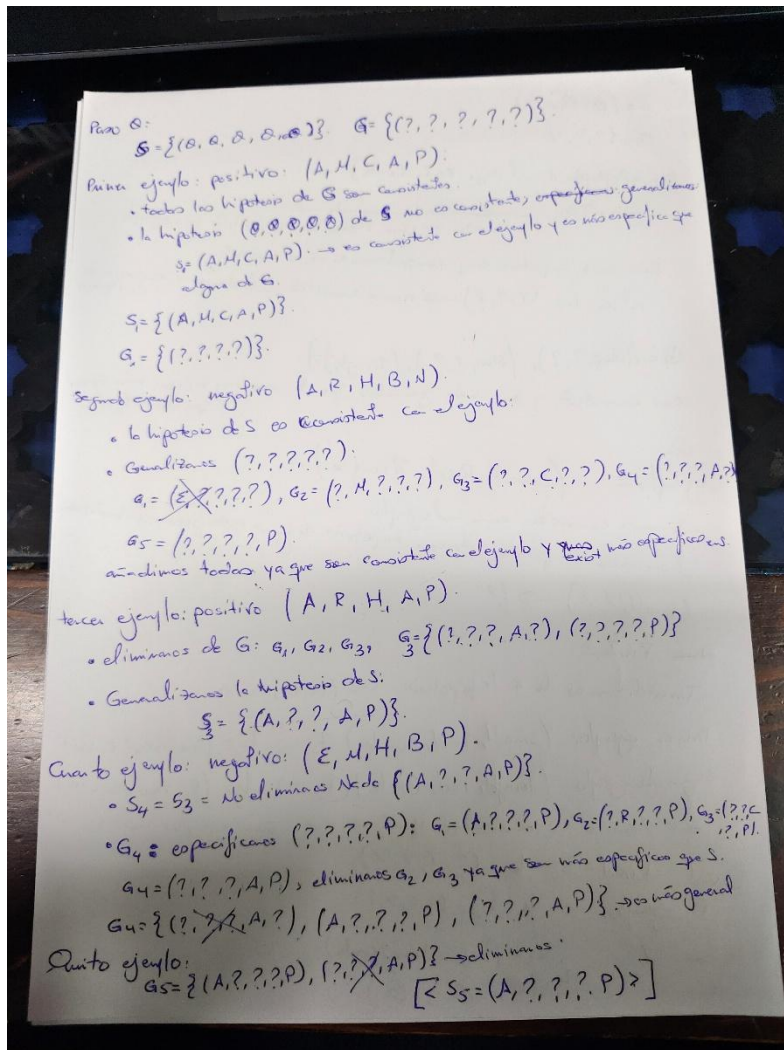 Paso 0:
S={(∅, ∅, ∅, ∅, ∅)}. G={(?, ?, ?, ?, ?)}.
Primer ejemplo: positivo: (A, M, C, A, P).
• todas las hipotesis de G son consistentes.
• la hipotesis (∅,∅,∅,∅,∅) de S no es consistente, generalizamos
s₁=(A,M,C,A,P). → es consistente con el ejemplo y es más especifica que
alguna de G.
S₁={(A,M,C,A,P)}.
G₁={(?,?,?,?)}.
Segundo ejemplo: negativo (A,R,H,B,N).
• la hipotesis de S es consistente con el ejemplo:
• Generalizamos (?,?,?,?,?).
G₁=(E,?,?,?,?), G₂=(?,M,?,?,?), G₃=(?,?,C,?,?), G₄=(?,?,?,A,?)
G5=(?,?,?,?,P).
añadimos todas ya que son consistente con el ejemplo y exist más especificas en S.
tercer ejemplo: positivo (A,R,H,A,P).
• eliminamos de G: G₁, G₂, G₃, G₃={(?,?,?,A,?), (?,?,?,?,P)}
• Generalizamos la hipotesis de S:
S₃={(A,?,?,A,P)}.
Cuarto ejemplo: negativo: (E,M,H,B,P).
• S₄=S₃= No eliminamos Nada {(A,?,?,A,P)}.
• G₄: especificamos (?,?,?,?,P): G₁=(A,?,?,?,P), G₂=(?,R,?,?,P), G₃=(?,?,C
,?,P).
G4=(?,?,?,A,P), eliminamos G₂, G₃ ya que son más especificos que S.
G4={(?,?,?,A,?), (A,?,?,?,P), (?,?,?,A,P)} → es más general
Quinto ejemplo:
G5={(A,?,?,?,P), (?,?,?,A,P)} → eliminamos.
[< S5=(A,?,?,?,P)>]